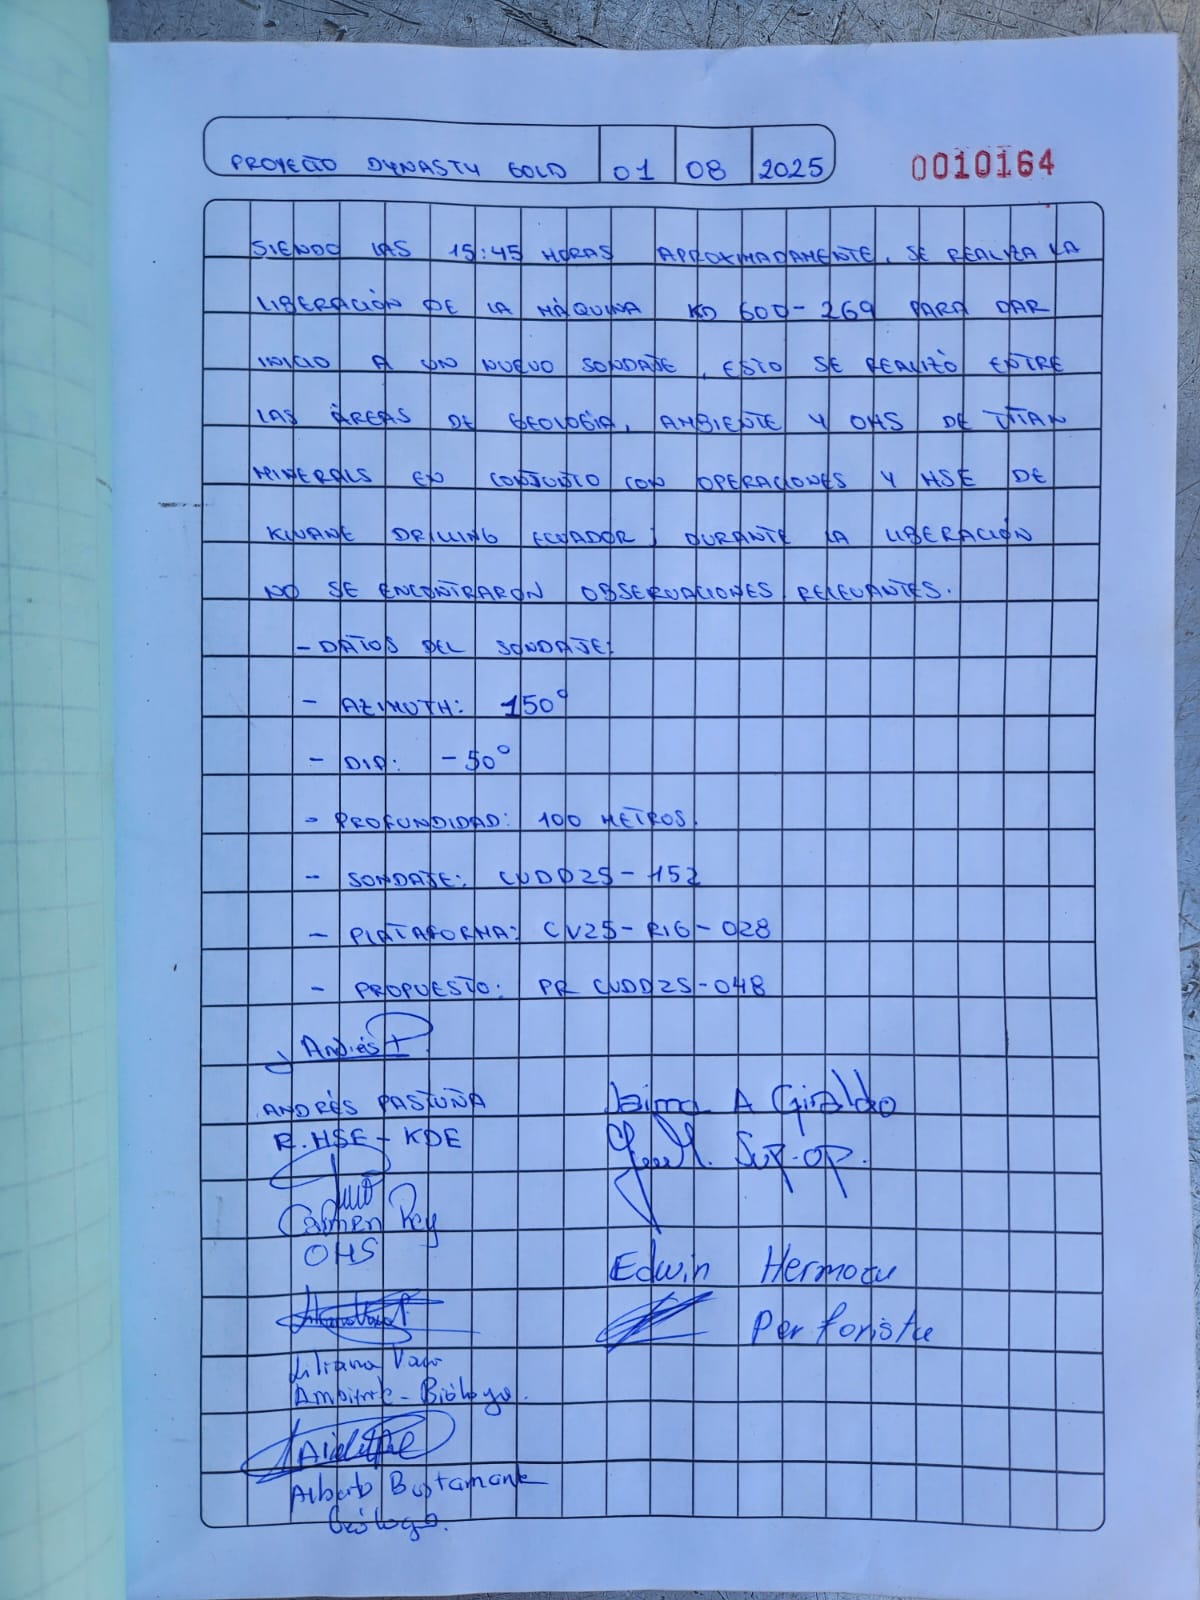 PROYECTO DYNASTY GOLD 01 08 2025 0010164
SIENDO LAS 15:45 HORAS APROXIMADAMENTE, SE REALIZA LA
LIBERACIÓN DE LA MÁQUINA KD 600-269 PARA DAR
INICIO A UN NUEVO SONDAJE, ESTO SE REALIZÓ ENTRE
LAS ÁREAS DE GEOLOGÍA, AMBIENTE Y OHS DE TITAN
MINERALS EN CONJUNTO CON OPERACIONES Y HSE DE
KLUANE DRILLING ECUADOR; DURANTE LA LIBERACIÓN
NO SE ENCONTRARON OBSERVACIONES RELEVANTES.
- DATOS DEL SONDAJE:
- AZIMUTH: 150°
- DIP: -50°
- PROFUNDIDAD: 100 METROS.
- SONDAJE: CVDD25-152
- PLATAFORMA: CV25-RIG-028
- PROPUESTO: PR CVDD25-048
Andrés P
ANDRÉS PASTUÑA
R.HSE - KDE
Jaime A Giraldo
Sup-op.
Carmen Rey
OHS
Edwin
Perforista
Liliana
Ambiente - Biólogo.
Alberto Bustamante
Geólogo.